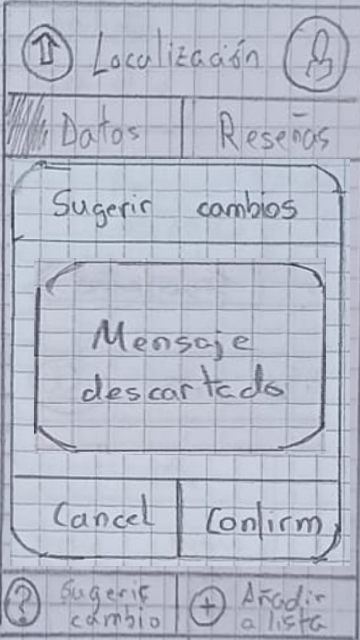 Localización
Datos
Reseñas
Sugerir cambios
Mensaje
descartado
Cancel
Confirm
? Sugerir
cambio
+ Añadir
a lista